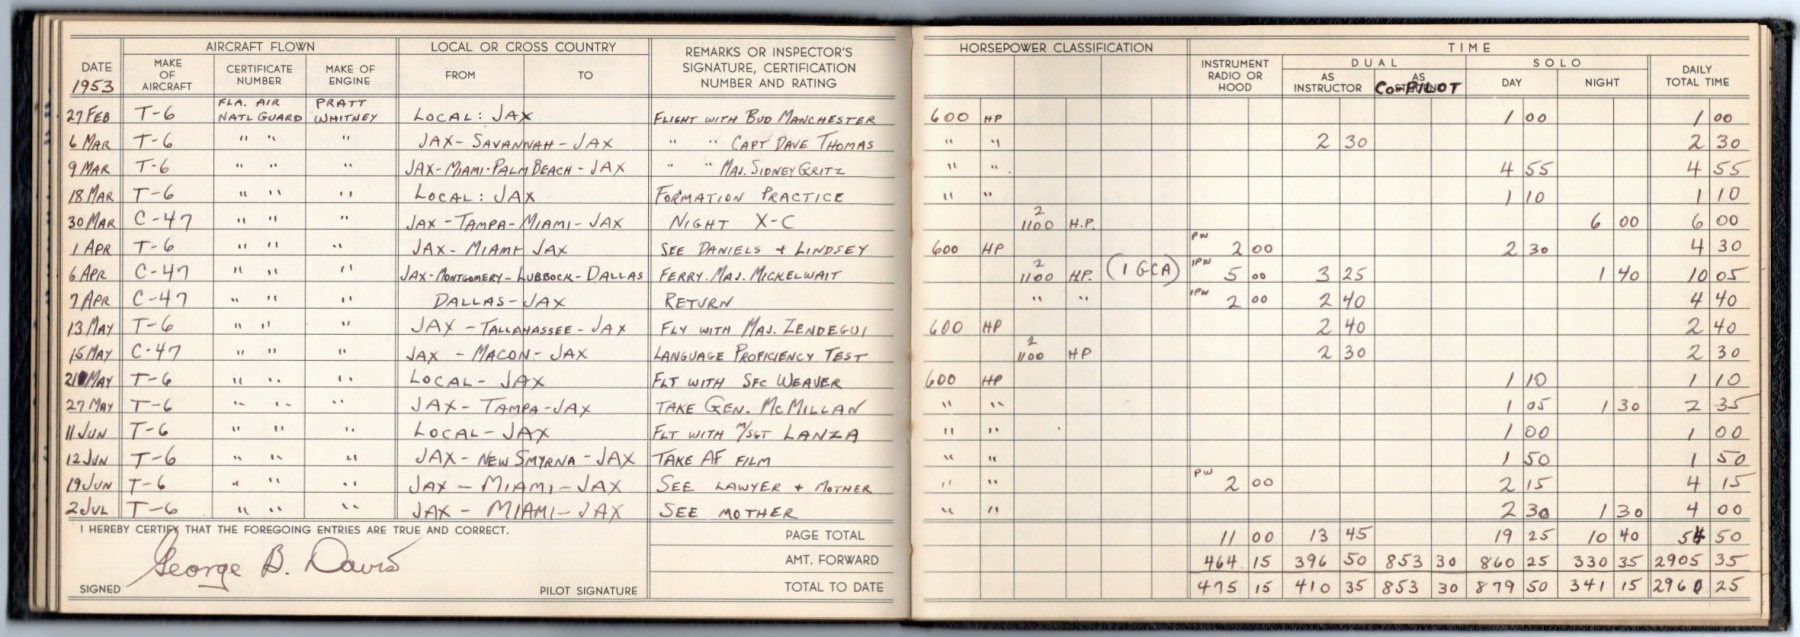 AIRCRAFT FLOWN LOCAL OR CROSS COUNTRY REMARKS OR INSPECTOR'S SIGNATURE, CERTIFICATION NUMBER AND RATING HORSEPOWER CLASSIFICATION TIME
DATE 1953 MAKE OF AIRCRAFT CERTIFICATE NUMBER MAKE OF ENGINE FROM TO INSTRUMENT RADIO OR HOOD DUAL AS INSTRUCTOR AS CO-PILOT SOLO DAY NIGHT DAILY TOTAL TIME
27 FEB T-6 FLA. AIR NATL GUARD PRATT WHITNEY LOCAL: JAX FLIGHT WITH BUD MANCHESTER 600 HP 1 00 1 00
6 MAR T-6 " " " JAX-SAVANNAH-JAX " " CAPT DAVE THOMAS " " 2 30 2 30
9 MAR T-6 " " " JAX-MIAMI-PALM BEACH-JAX " " MAJ. SIDNEY GRITZ " " 4 55 4 55
18 MAR T-6 " " " LOCAL: JAX FORMATION PRACTICE " " 1 10 1 10
30 MAR C-47 " " " JAX-TAMPA-MIAMI-JAX NIGHT X-C 2 1100 H.P. 6 00 6 00
1 APR T-6 " " " JAX-MIAMI JAX SEE DANIELS + LINDSEY 600 HP PW 2 00 2 30 4 30
6 APR C-47 " " " JAX-MONTGOMERY-LUBBOCK-DALLAS FERRY. MAJ. MICKELWAIT 2 1100 HP. (1 GCA) IPW 5 00 3 25 1 40 10 05
7 APR C-47 " " " DALLAS-JAX RETURN " " IPW 2 00 2 40 4 40
13 MAY T-6 " " " JAX-TALLAHASSEE-JAX FLY WITH MAJ. ZENDEGUI 600 HP 2 40 2 40
15 MAY C-47 " " " JAX-MACON-JAX LANGUAGE PROFICIENCY TEST 2 1100 HP 2 30 2 30
21 MAY T-6 " " " LOCAL-JAX FLT WITH SFC WEAVER 600 HP 1 10 1 10
27 MAY T-6 " " " JAX-TAMPA-JAX TAKE GEN. McMILLAN " " 1 05 1 30 2 35
11 JUN T-6 " " " LOCAL-JAX FLT WITH M/SGT LANZA " " 1 00 1 00
12 JUN T-6 " " " JAX-NEW SMYRNA-JAX TAKE AF FILM " " 1 50 1 50
19 JUN T-6 " " " JAX-MIAMI-JAX SEE LAWYER + MOTHER " " PW 2 00 2 15 4 15
2 JUL T-6 " " " JAX-MIAMI-JAX SEE MOTHER " " 2 30 1 30 4 00
I HEREBY CERTIFY THAT THE FOREGOING ENTRIES ARE TRUE AND CORRECT. PAGE TOTAL 11 00 13 45 19 25 10 40 54 50
George B. Davis AMT. FORWARD 464 15 396 50 853 30 860 25 330 35 2905 35
SIGNED PILOT SIGNATURE TOTAL TO DATE 475 15 410 35 853 30 879 50 341 15 2960 25